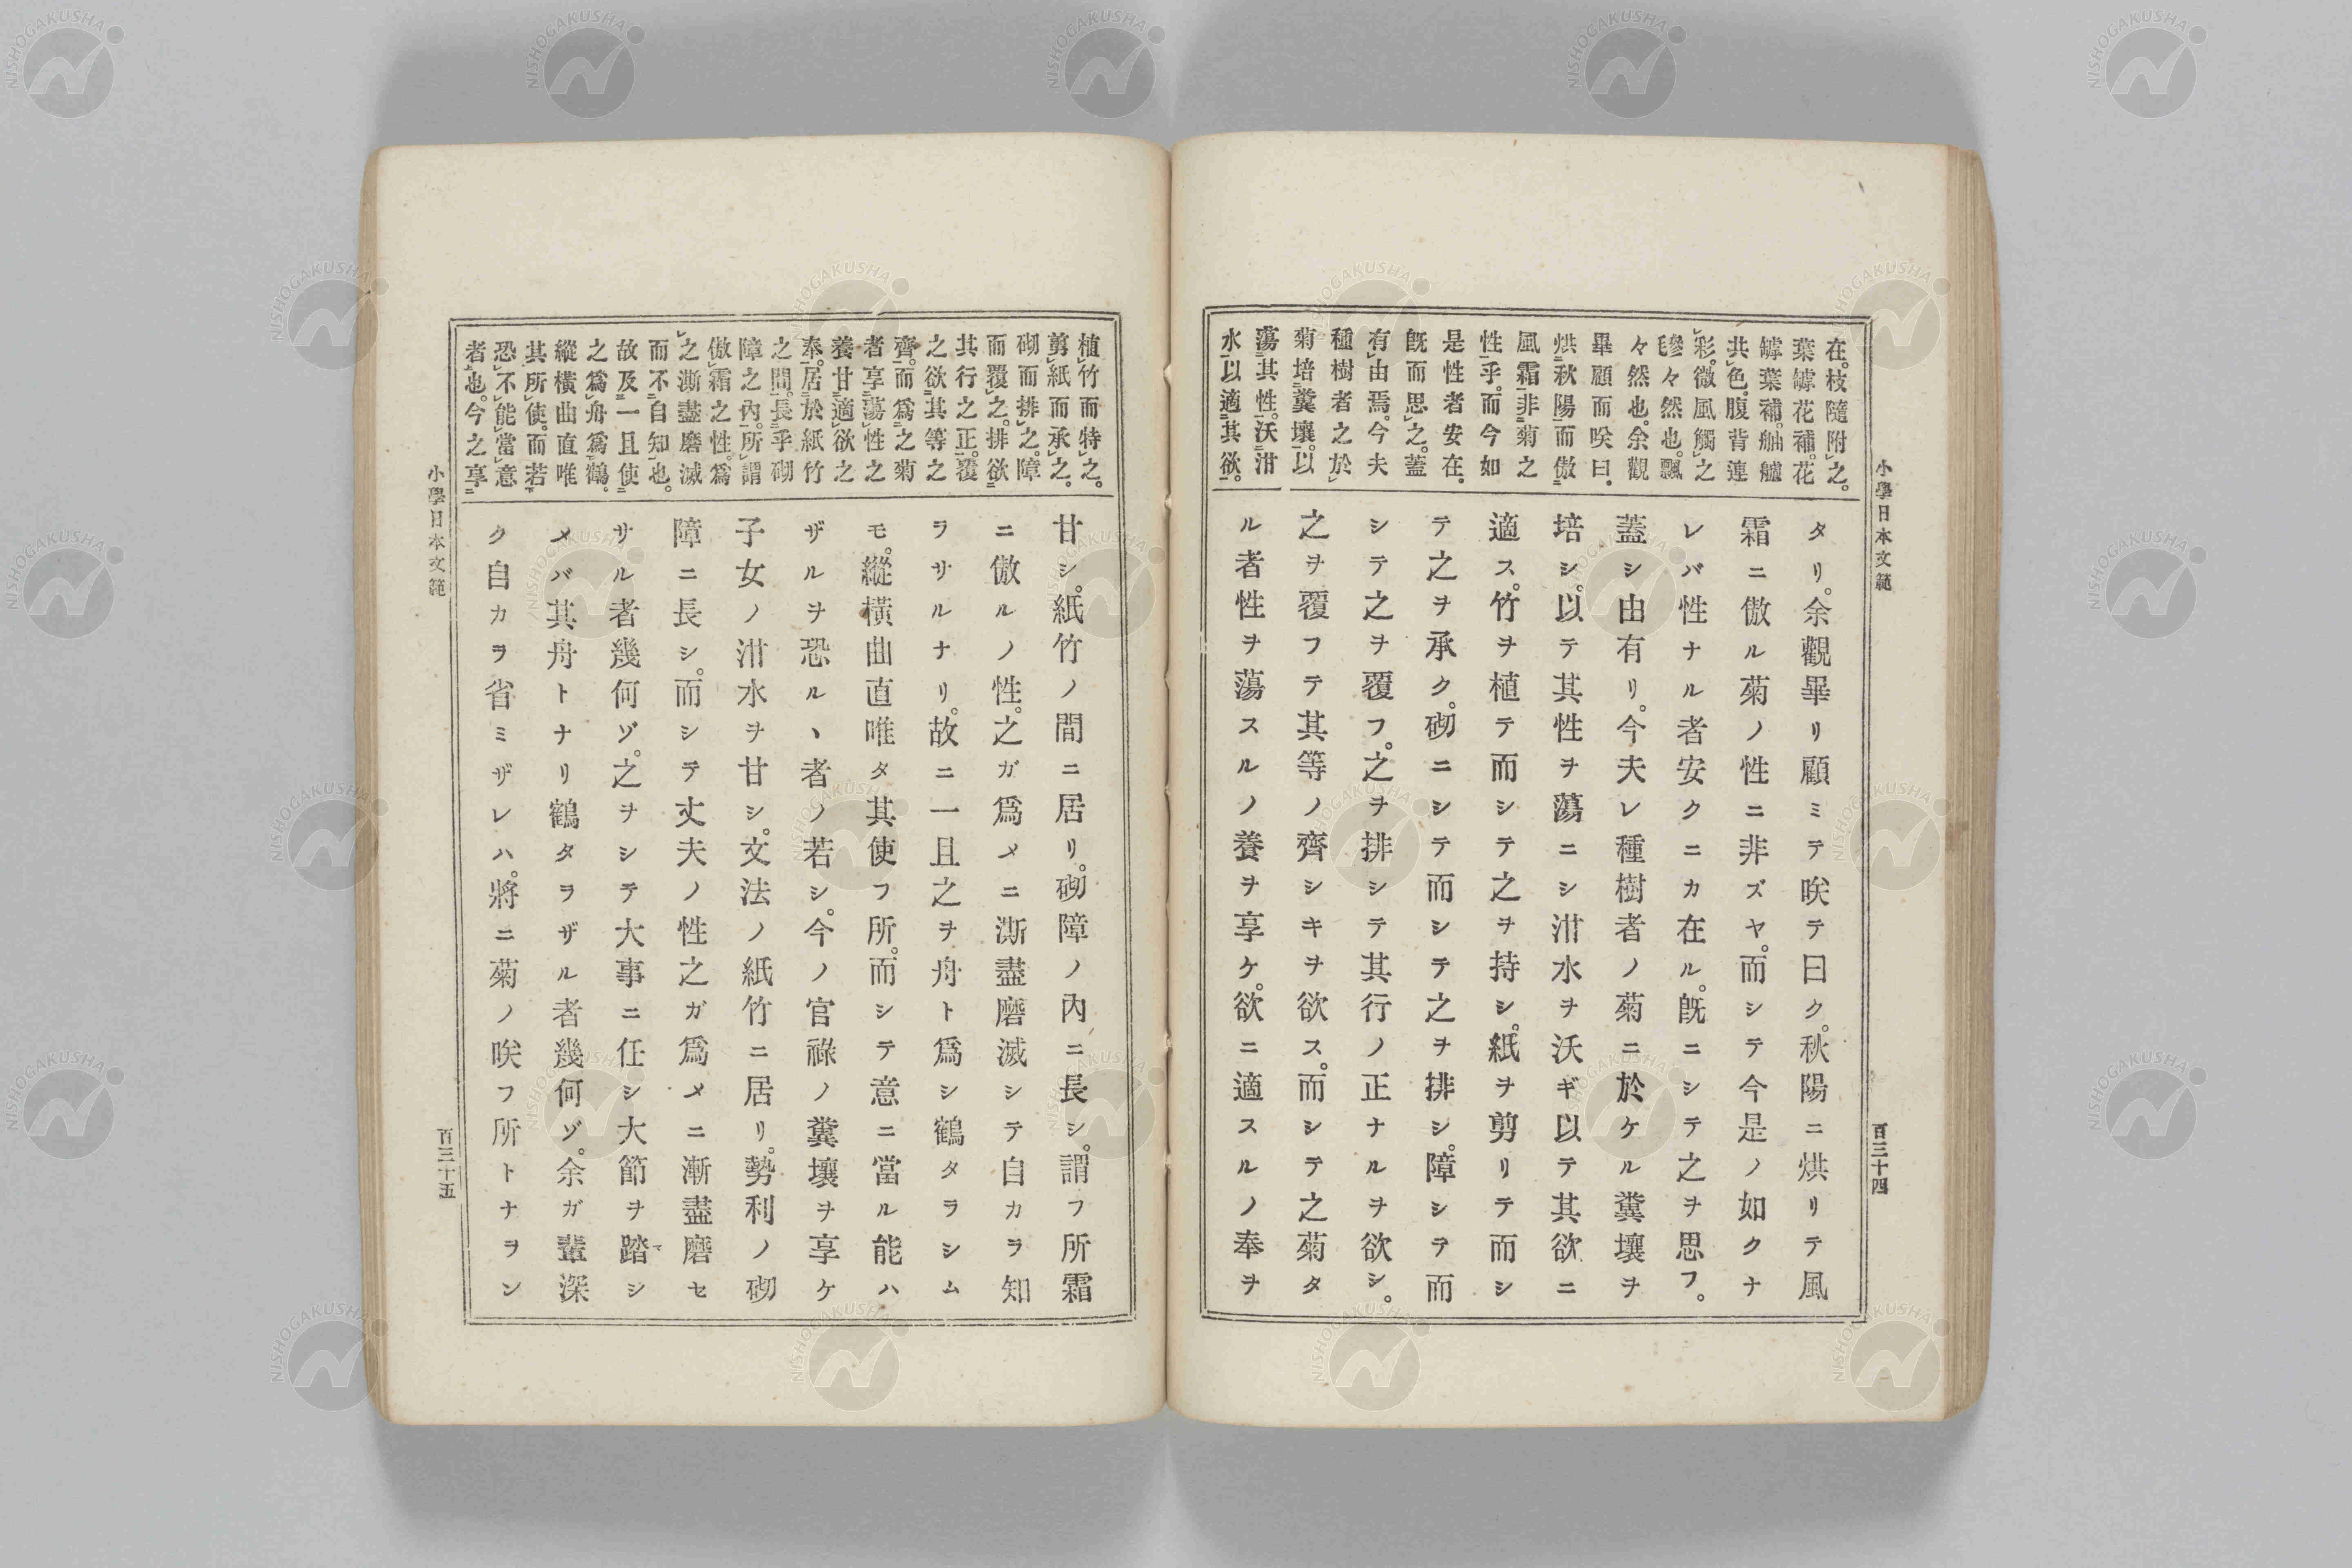 小學日本文範
百三十四
在。枝隨附之。
葉罅花補。花
罅葉補。舳艫
共色。腹背連
彩。微風觸之
毿々然也。飄
々然也。余觀
畢顧而咲曰。
烘秋陽而傲
風霜非菊之
性乎。而今如
是性者安在。
既而思之。蓋
有由焉。今夫
種樹者之於
菊培糞壤。以
蕩其性。沃泔
水以適其欲。
タリ。余觀畢リ顧ミテ咲テ曰ク。秋陽ニ烘リテ風
霜ニ傲ル菊ノ性ニ非ズヤ。而シテ今是ノ如クナ
レバ性ナル者安クニカ在ル。既ニシテ之ヲ思フ。
蓋シ由有リ。今夫レ種樹者ノ菊ニ於ケル糞壤ヲ
培シ。以テ其性ヲ蕩ニシ泔水ヲ沃ギ以テ其欲ニ
適ス。竹ヲ植テ而シテ之ヲ持シ。紙ヲ剪リテ而シ
テ之ヲ承ク。砌ニシテ而シテ之ヲ排シ。障シテ而
シテ之ヲ覆フ。之ヲ排シテ其行ノ正ナルヲ欲シ。
之ヲ覆フテ其等ノ齊シキヲ欲ス。而シテ之菊タ
ル者性ヲ蕩スルノ養ヲ享ケ。欲ニ適スルノ奉ヲ
植竹而特之。
剪紙而承之。
砌而排之。障
而覆之。排欲
其行之正。覆
之欲其等之
齊。而爲之菊
者享蕩性之
養甘適欲之
奉。居於紙竹
之間。長乎砌
障之內。所謂
傲霜之性。爲
之澌盡磨滅
而不自知也。
故及一旦使
之爲舟爲鶴。
縱橫曲直唯
其所使。而若
恐不能當意
者也。今之享
甘シ。紙竹ノ間ニ居リ。砌障ノ內ニ長シ。謂フ所霜
ニ傲ルノ性。之ガ爲メニ澌盡磨滅シテ自カラ知
ラサルナリ。故ニ一旦之ヲ舟ト爲シ鶴タラシム
モ。縱橫曲直唯タ其使フ所。而シテ意ニ當ル能ハ
ザルヲ恐ルヽ者ノ若シ。今ノ官祿ノ糞壤ヲ享ケ
子女ノ泔水ヲ甘シ。文法ノ紙竹ニ居リ。勢利ノ砌
障ニ長シ。而シテ丈夫ノ性之ガ爲メニ漸盡磨セ
サル者幾何ゾ。之ヲシテ大事ニ任シ大節ヲ踏マシ
メバ其舟トナリ鶴タヲザル者幾何ゾ。余ガ輩深
ク自カラ省ミザレハ。將ニ菊ノ咲フ所トナヲン
小學日本文範
百三十五